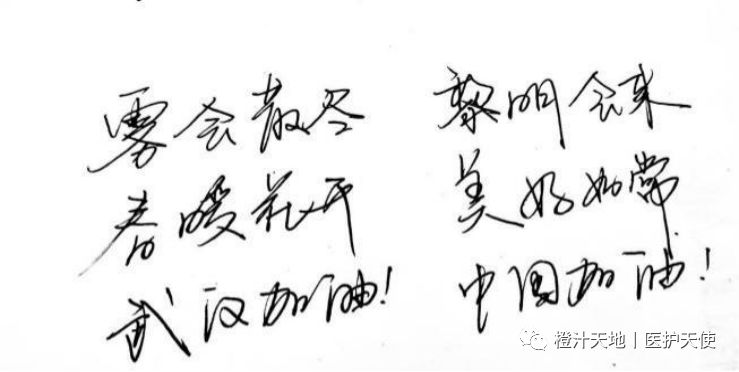 雾会散尽 黎明会来
春暖花开 美好如常
武汉加油! 中国加油!
橙汁天地丨医护天使